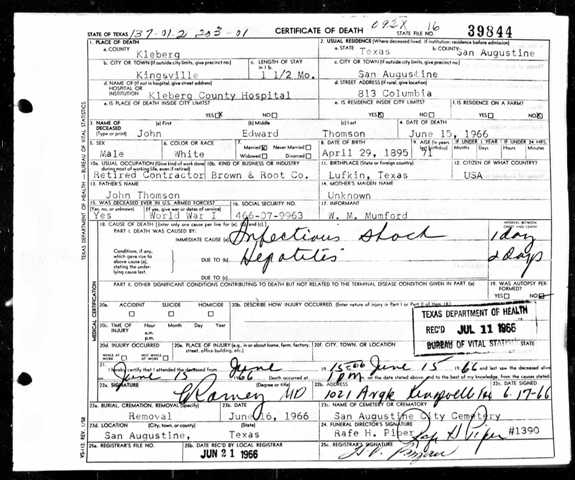 137-01 2 203-01 092X 16
STATE OF TEXAS CERTIFICATE OF DEATH 39844
1. PLACE OF DEATH 2. USUAL RESIDENCE (Where deceased lived. If institution: residence before admission)
a. COUNTY a. STATE b. COUNTY
Kleberg Texas San Augustine
b. CITY OR TOWN (If outside city limits, give precinct no.) c. LENGTH OF STAY in 1b. c. CITY OR TOWN (If outside city limits, give precinct no.)
Kingsville 1 1/2 Mo. San Augustine
d. NAME OF (If not in hospital, give street address) HOSPITAL OR INSTITUTION d. STREET ADDRESS (If rural, give location)
Kleberg County Hospital 813 Columbia
e. IS PLACE OF DEATH INSIDE CITY LIMITS? e. IS RESIDENCE INSIDE CITY LIMITS? f. IS RESIDENCE ON A FARM?
YES X NO YES X NO YES NO X
3. NAME OF DECEASED (Type or print) (a) First (b) Middle (c) Last 4. DATE OF DEATH
John Edward Thomson June 15, 1966
5. SEX 6. COLOR OR RACE 7. Married X Never Married Widowed Divorced 8. DATE OF BIRTH 9. AGE (In years last birthday) IF UNDER 1 YEAR IF UNDER 24 HRS.
Months Days Hours Min.
Male White April 29, 1895 71
10a. USUAL OCCUPATION (Give kind of work done during most of working life, even if retired) 10b. KIND OF BUSINESS OR INDUSTRY 11. BIRTHPLACE (State or foreign country) 12. CITIZEN OF WHAT COUNTRY?
Retired Contractor Brown & Root Co. Lufkin, Texas USA
13. FATHER'S NAME 14. MOTHER'S MAIDEN NAME
John Thomson Unknown
15. WAS DECEASED EVER IN U.S. ARMED FORCES? 16. SOCIAL SECURITY NO. 17. INFORMANT
(Yes, no, or unknown) (If yes, give war or dates of service)
Yes World War I 466-07-9963 W. M. Mumford
18. CAUSE OF DEATH INTERVAL BETWEEN ONSET AND DEATH
PART I. DEATH WAS CAUSED BY:
IMMEDIATE CAUSE (a) Infectious Shock 1 day
Conditions, if any, which gave rise to above cause (a), stating the underlying cause last.
DUE TO (b) Hepatitis 2 days
DUE TO (c)
PART II. OTHER SIGNIFICANT CONDITIONS CONTRIBUTING TO DEATH BUT NOT RELATED TO THE TERMINAL DISEASE CONDITION GIVEN IN PART I(a) 19. WAS AUTOPSY PERFORMED?
YES NO
20a. ACCIDENT SUICIDE HOMICIDE 20b. DESCRIBE HOW INJURY OCCURRED.
20c. TIME OF INJURY Hour Month Day Year
a.m.
p.m.
TEXAS DEPARTMENT OF HEALTH
REC'D JUL 11 1966
BUREAU OF VITAL STATISTICS
20d. INJURY OCCURRED 20e. PLACE OF INJURY (e.g. in or about home, farm, factory, street, office building, etc.) 20f. CITY, TOWN, OR LOCATION
WHILE AT WORK NOT WHILE AT WORK
June 15 June 66 June 15 66
Death occurred at 1 P m. on the date stated above, and to the best of my knowledge, from the causes stated.
22a. SIGNATURE (Degree or title) 22b. ADDRESS
MD 1021 6-17-66
23a. BURIAL, CREMATION, REMOVAL (Specify) 23b. DATE 23c. NAME OF CEMETERY OR CREMATORY
Removal June 16, 1966 San Augustine City Cemetery
23d. LOCATION (City, town, or county) (State) 24. FUNERAL DIRECTOR'S SIGNATURE
San Augustine, Texas Rafe H. Piper Rafe H Piper #1390
25a. REGISTRAR'S FILE NO. 25b. DATE REC'D BY LOCAL REGISTRAR 25c. REGISTRAR'S SIGNATURE
JUN 21 1966
TEXAS DEPARTMENT OF HEALTH — BUREAU OF VITAL STATISTICS
MEDICAL CERTIFICATION